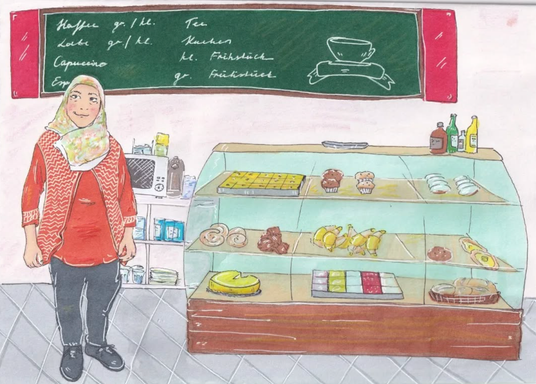 Kaffee gr./kl.
Latte gr./kl.
Capuccino
Esp
Tee
Kuchen
kl. Frühstück
gr. Frühstück